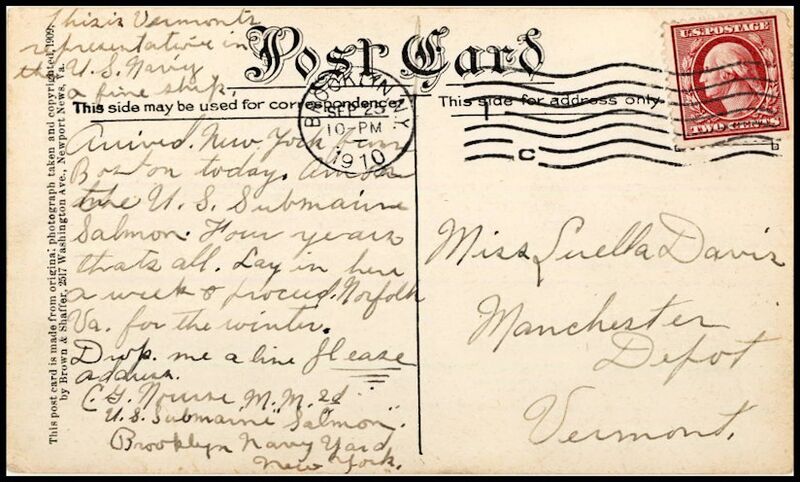 This is Vermonts
representative in
the U.S. Navy
a fine ship.
Post Card
This side may be used for correspondence.
This side for address only
BROOKLYN N.Y.
SEP 25
10-PM
1910
C
U.S. POSTAGE
TWO CENTS
This post card is made from original photograph taken and copyrighted, 1909,
by Brown & Shaffer, 2517 Washington Ave., Newport News, Va.
Arrived New York from
Boston today. Am on
the U. S. Submaine
Salmon. Four years
thats all. Lay in here
a week & proceed Norfolk
Va. for the winter.
Drop me a line Please
address.
C. G. Nourse M.M. 2d
U.S. Submaine "Salmon".
Brooklyn Navy Yard
New York.
Miss Luella Davis
Manchester
Depot
Vermont.